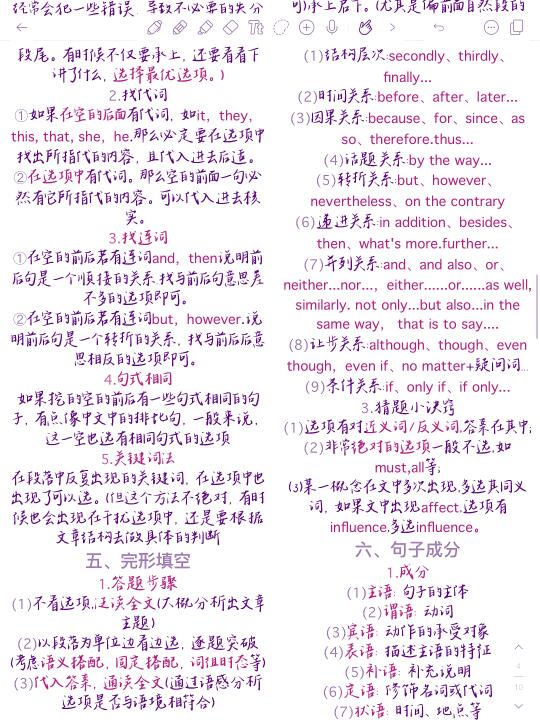 经常会犯一些错误，导致不必要的失分
段尾。有时候不仅要承上，还要看看下
讲了什么，选择最优选项。)
2.找代词
①如果在空的后面有代词，如it，they，
this, that, she，he.那么必定要在选项中
找出所指代的内容，且代入进去后造。
②在选项中有代词。那么空的前面一句必
然有它所指代的内容。可以代入进去核
实。
3.找连词
①在空的前后若有连词and，then说明前
后句是一个顺接的关系.找与前后句意思差
不多的选项即可。
②在空的前后若有连词but，however.说
明前后句是一个转折的关系，找与前后后意
思相反的选项即可。
4.句式相同
如果挖的空的前后有一些句式相同的句
子，有点像中文中的排比句，一般来说，
这一空也选有相同句式的选项
5.关键词法
在段落中反复出现的关键词，在选项中也
出现了可以选。(但这个方法不绝对，有时
候也会出现在干扰选项中，还是要根据
文章结构去做具体的判断
五、完形填空
1.答题步骤
(1)不看选项,泛读全文(大概分析出文章
主题)
(2)以段落为单位边看边选，逐题突破
(考虑语义搭配，固定搭配，词组时态等)
(3)代入答案，通读全文(通过语感分析
选项是否与语境相符合)
可)承上启下。(尤其是1偏前面自然段的
(1)结构层次:secondly、thirdly、
finally...
(2)时间关系:before、after、later...
(3)因果关系:because、for、since、as
so、therefore.thus...
(4)话题关系:by the way...
(5)转折关系:but、however、
nevertheless、on the contrary
(6)递进关系:in addition、besides、
then、what's more.further...
(7)并列关系:and、and also、or、
neither...nor...，either......or......as well,
similarly. not only...but also...in the
same way， that is to say....
(8)让步关系:although、though、even
though，even if、no matter+疑问词...
(9)条件关系:if、only if、if only...
3.猜题小诀窍
(1)选项有对近义词/反义词,答案在其中;
(2)非常绝对的选项一般不选,如
must,all等;
(3)某一概念在文中多次出现,多选其同义
词，如果文中出现affect.选项有
influence.多选influence。
六、句子成分
1.成分
(1)主语: 句子的主体
(2)谓语: 动词
(3)宾语: 动作的承受对象
(4)表语: 描述主语的特征
(5)补语: 补充说明
(6)定语: 修饰名词或代词
(7)状语: 时间、地点等
4
10